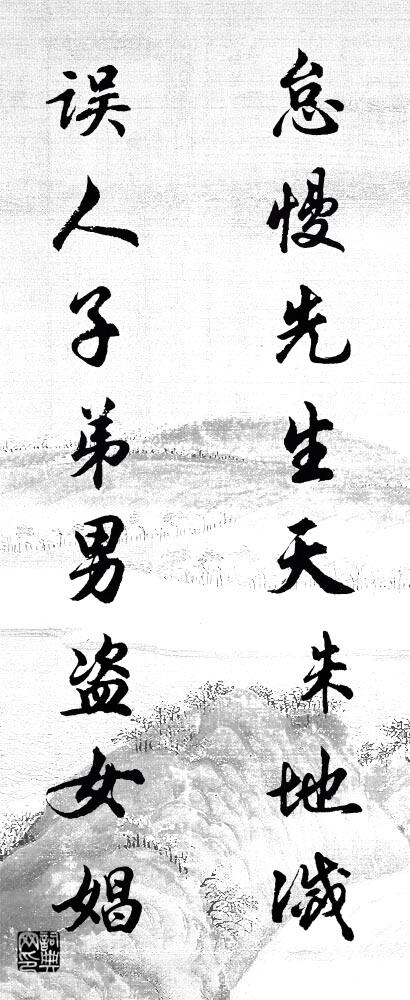 怠慢先生天朱地滅
误人子弟男盗女娼
詞典
网印